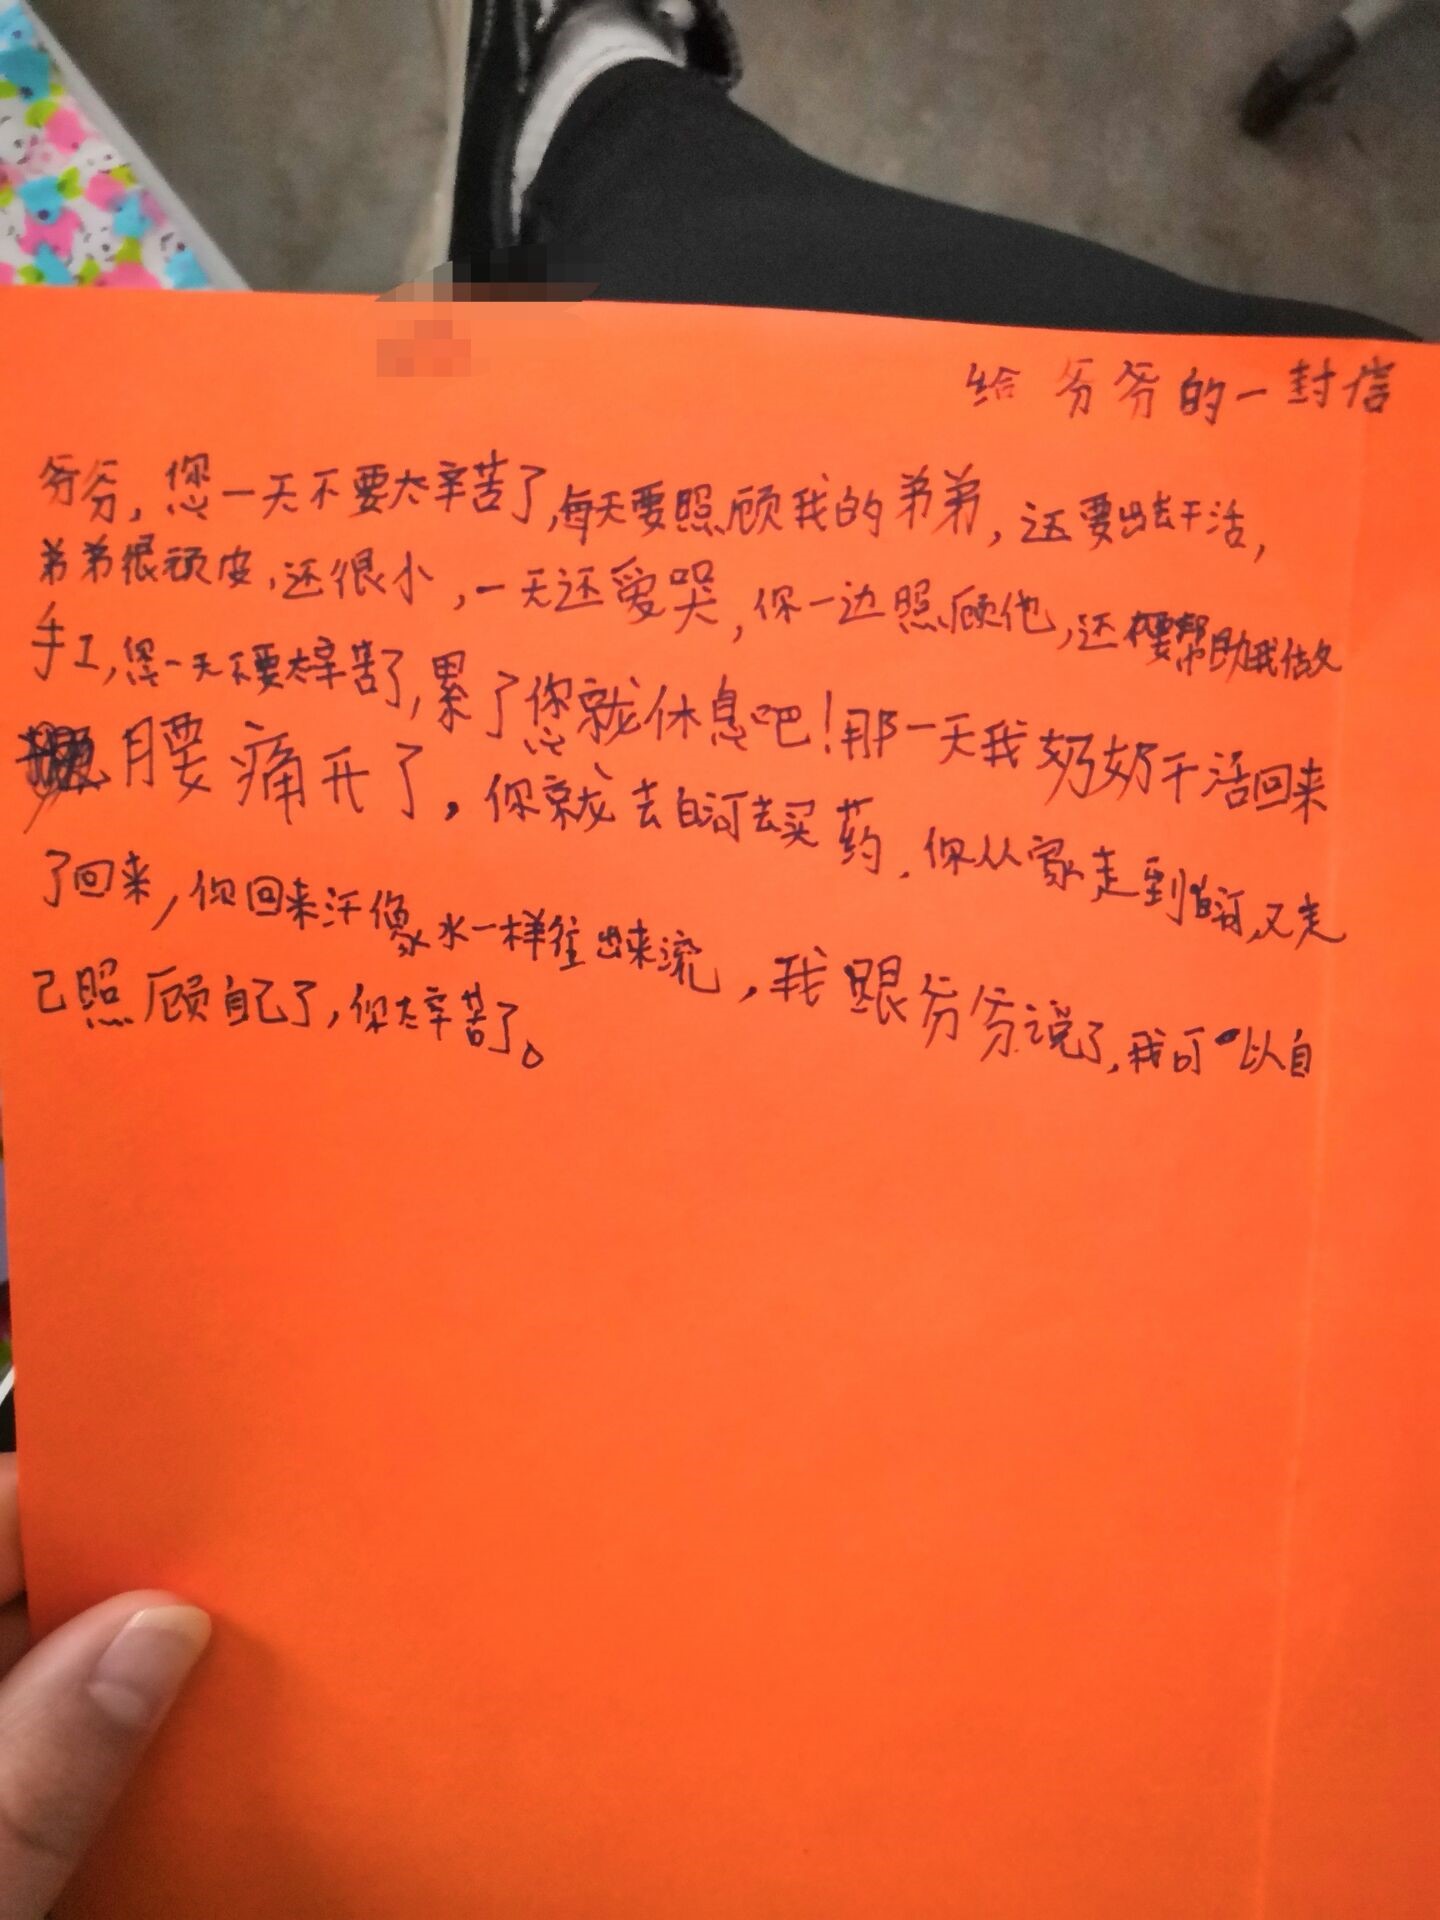 给爷爷的一封信
爷爷,您一天不要太辛苦了,每天要照顾我的弟弟,还要出去干活,
弟弟很顽皮,还很小,一天还爱哭,你一边照顾他,还要帮助我做
手工,您一天不要太辛苦了,累了您就休息吧!那一天我奶奶干活回来
腰痛开了,你就去白河去买药,你从家走到白河,又走
了回来,你回来汗像水一样往出来流,我跟爷爷说了,我可以自
己照顾自己了,你太辛苦了。